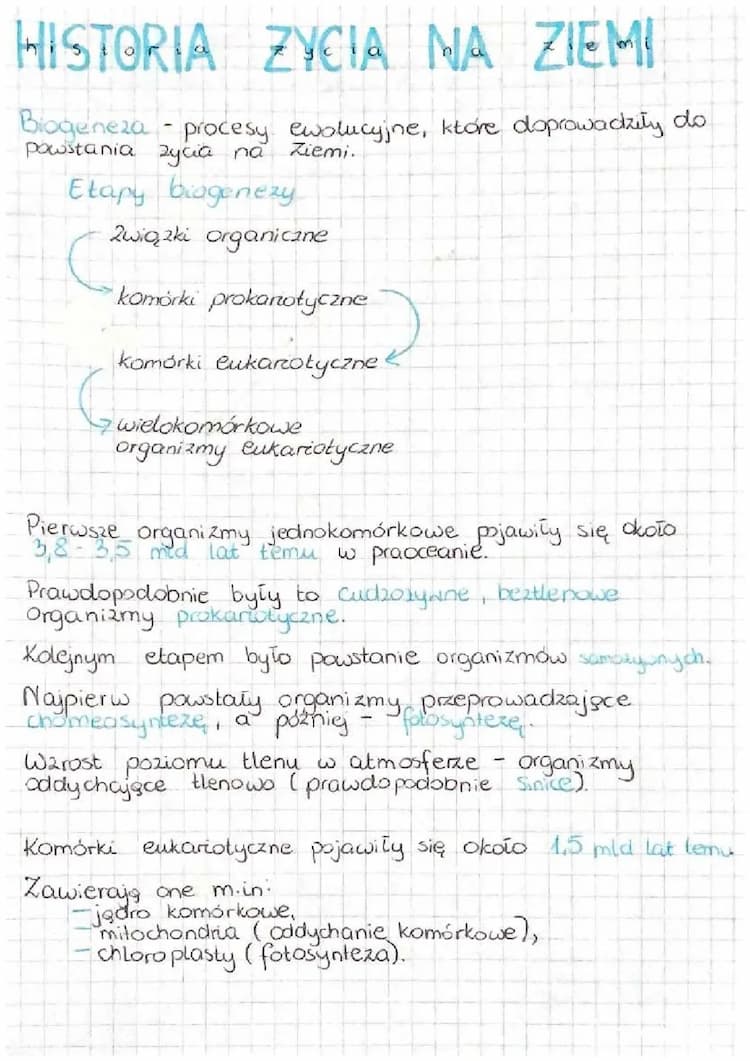 HISTORIA ŻYCIA NA ZIEMI
Biogeneza - procesy ewolucyjne, które doprowadziły do
powstania życia na Ziemi.
Etapy biogenezy
związki organiczne
komórki prokariotyczne
komórki eukariotyczne
wielokomórkowe
organizmy eukariotyczne
Pierwsze organizmy jednokomórkowe pojawiły się około
3,8-3,5 mld lat temu w praoceanie.
Prawdopodobnie były to cudzożywne, beztlenowe
organizmy prokariotyczne.
Kolejnym etapem było powstanie organizmów samożywnych.
Najpierw powstały organizmy przeprowadzające
chomeosyntezę, a później - fotosyntezę.
Wzrost poziomu tlenu w atmosferze - organizmy
oddychające tlenowo (prawdopodobnie sinice).
Komórki eukariotyczne pojawiły się około 1,5 mld lat temu
Zawierają one m.in:
- jądro komórkowe,
- mitochondria (oddychanie komórkowe),
- chloroplasty (fotosynteza).